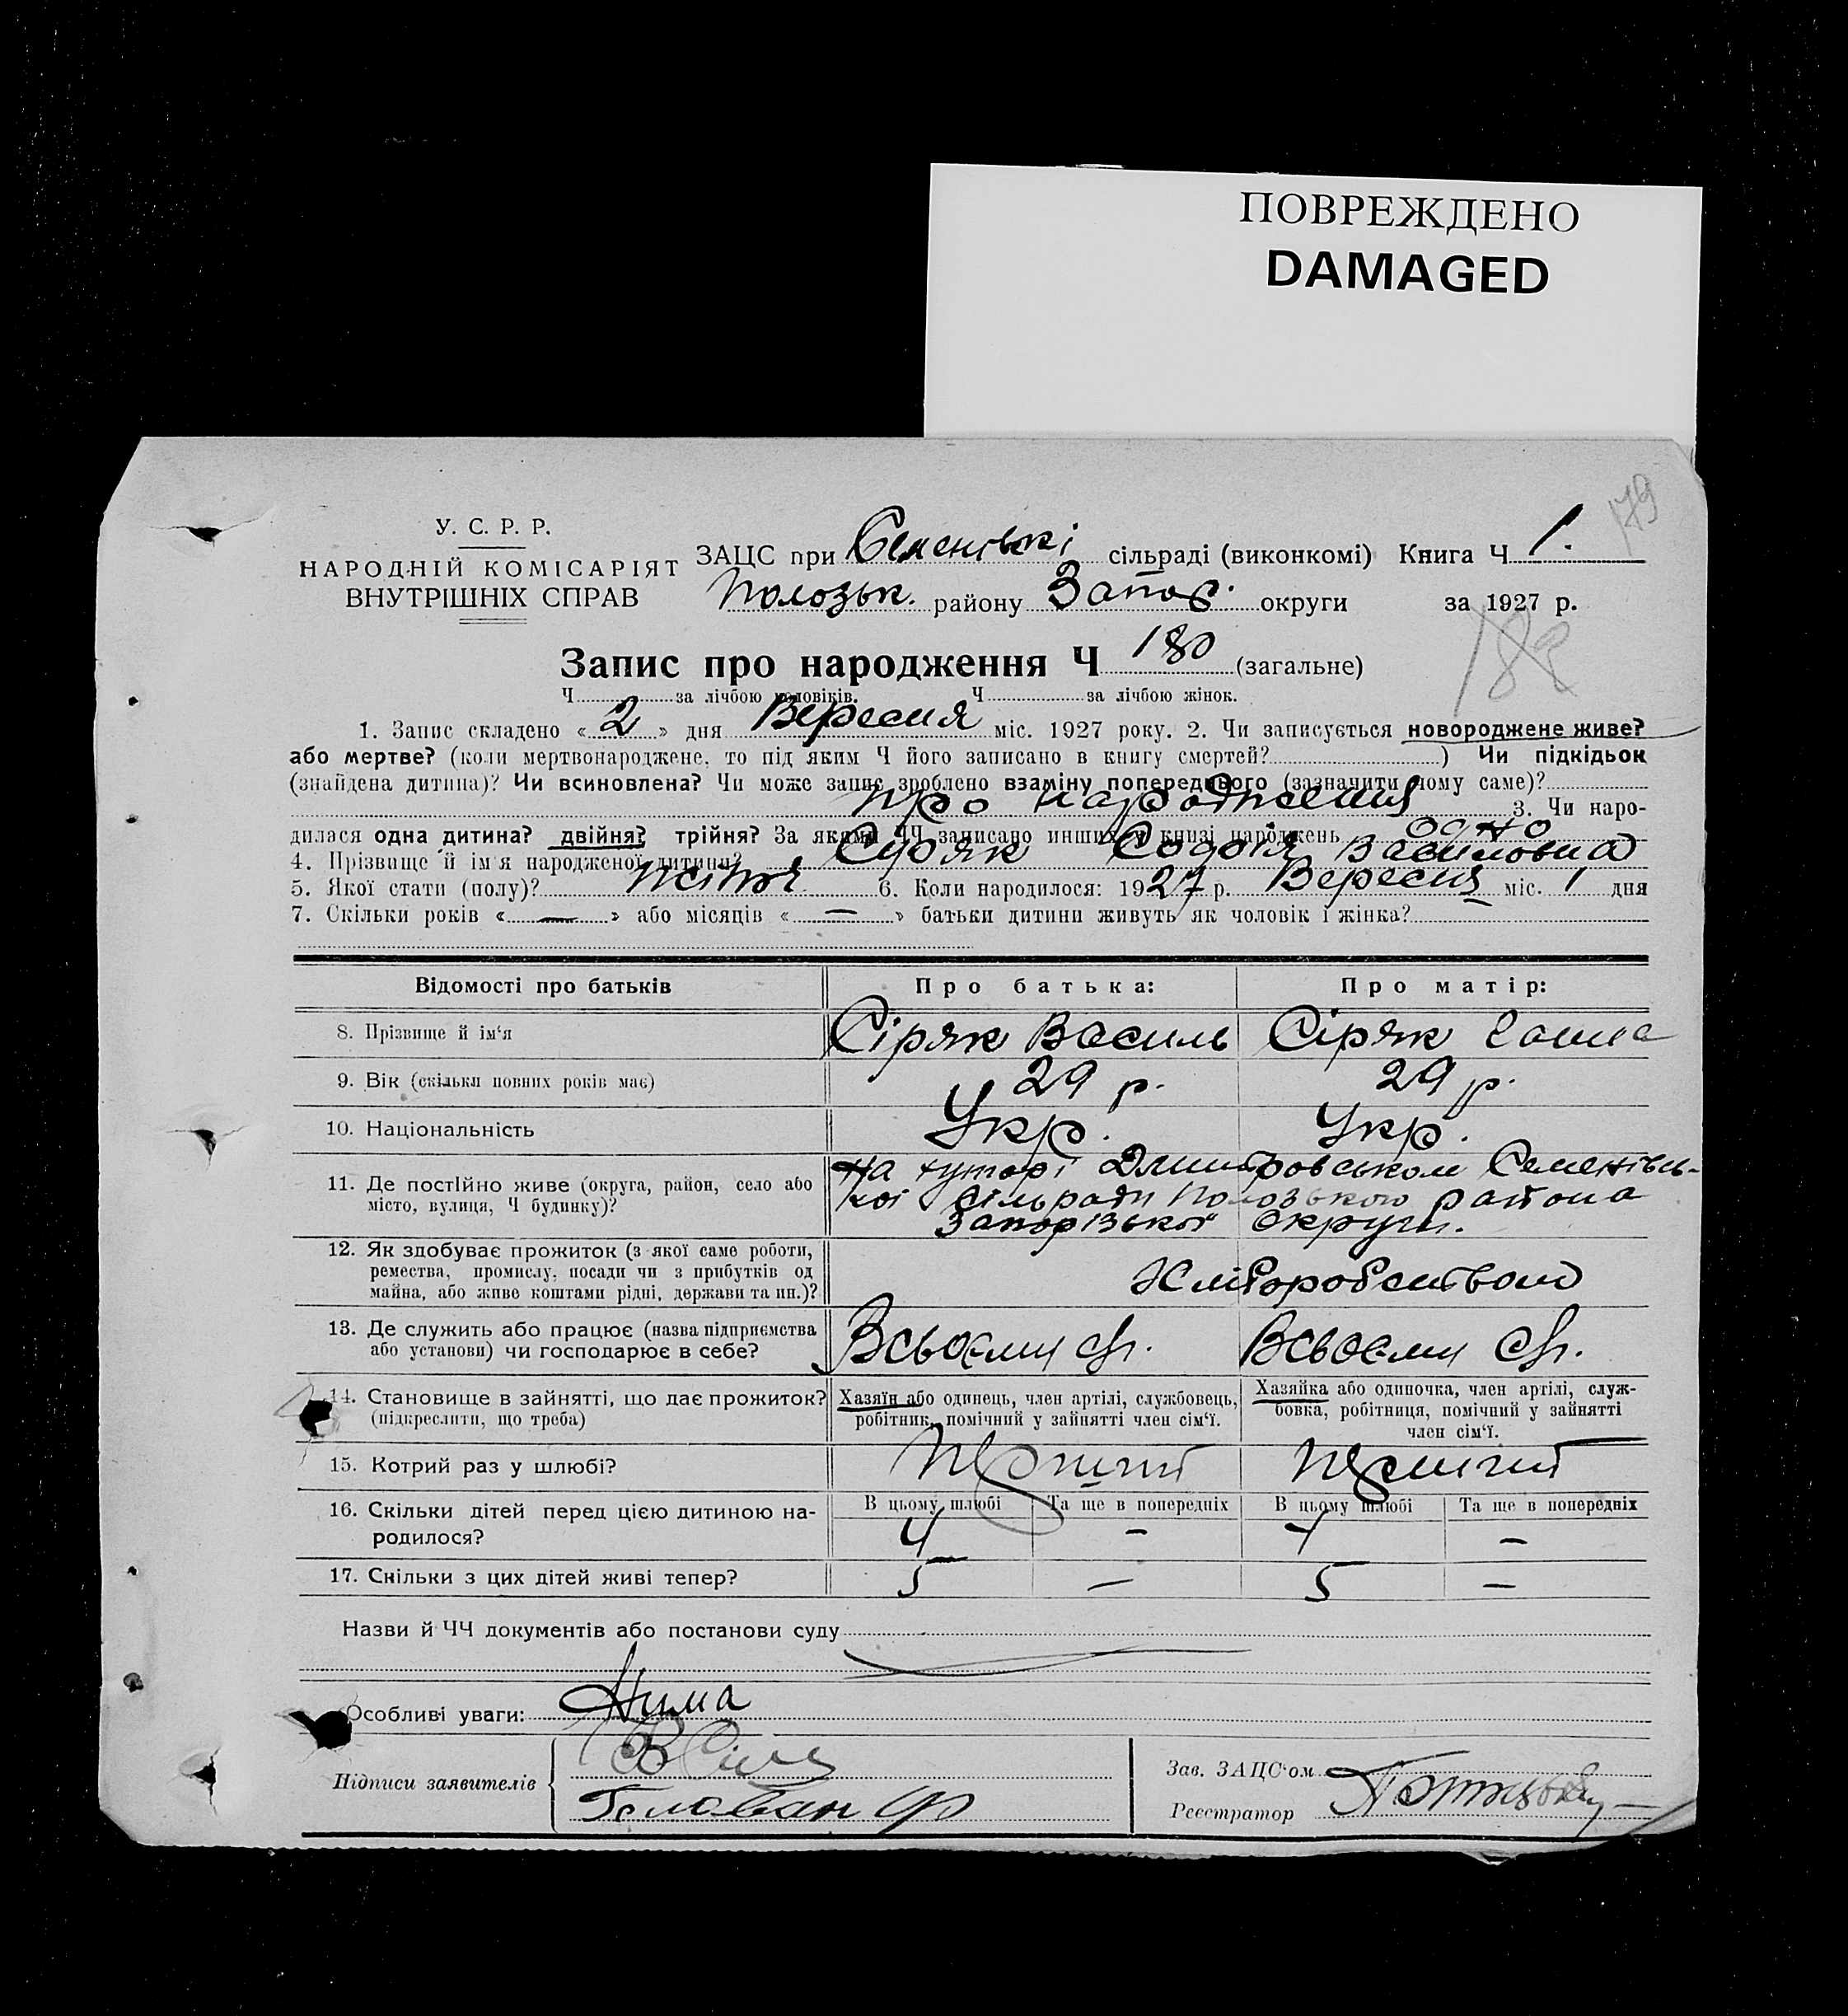 ПОВРЕЖДЕНО
DAMAGED
179
У. С. Р. Р.
НАРОДНІЙ КОМІСАРІЯТ
ВНУТРІШНІХ СПРАВ
ЗАЦС при Семенівькі сільраді (виконкомі) Книга Ч 1.
Полозьк. району Запор. округи за 1927 р.
188
Запис про народження Ч 180 (загальне)
Ч за лічбою чоловіків. Ч за лічбою жінок.
1. Запис складено « 2 » дня Вересня міс. 1927 року. 2. Чи записується новороджене живе?
або мертве? (коли мертвонароджене, то під яким Ч його записано в книгу смертей? ) Чи підкідьок
(знайдена дитина)? Чи всиновлена? Чи може запис зроблено взаміну попереднього (зазначити чому саме)?
про народження 3. Чи наро-
дилася одна дитина? двійня? трійня? За якими ЧЧ записано инших у книзі народжень одно
4. Прізвище й ім'я народженої дитини? Сіряк Софія Василовна
5. Якої стати (полу)? жіноч 6. Коли народилося: 1927 р. Вересня міс. 1 дня
7. Скільки років « — » або місяців « — » батьки дитини живуть як чоловік і жінка?
Відомості про батьків Про батька: Про матір:
8. Прізвище й ім'я Сіряк Василь Сіряк
9. Вік (скільки повних років має) 29 р. 29 р.
10. Національність Укр. Укр.
11. Де постійно живе (округа, район, село або місто, вулиця, Ч будинку)?
На хуторі Дмитровськом Семенівсь-
кої сільради Полозького района
Запорізької округи.
12. Як здобуває прожиток (з якої саме роботи,
ремества, промислу, посади чи з прибутків од
майна, або живе коштами рідні, держави та ин.)?
Хліборобством
13. Де служить або працює (назва підприємства
або установи) чи господарює в себе?
Всьоєму Всьоєму
14. Становище в зайнятті, що дає прожиток?
(підкреслити, що треба)
Хазяїн або одинець, член артілі, службовець,
робітник, помічний у зайнятті член сім'ї.
Хазяйка або одиночка, член артілі, служ-
бовка, робітниця, помічний у зайнятті
член сім'ї.
15. Котрий раз у шлюбі? Перший Перший
16. Скільки дітей перед цією дитиною на-
родилося?
В цьому шлюбі Та ще в попередніх В цьому шлюбі Та ще в попередніх
4 — 4 —
17. Скільки з цих дітей живі тепер? 5 — 5 —
Назви й ЧЧ документів або постанови суду
Особливі уваги: Нима
Підписи заявителів
Головань Ф
Зав. ЗАЦС'ом
Реєстратор